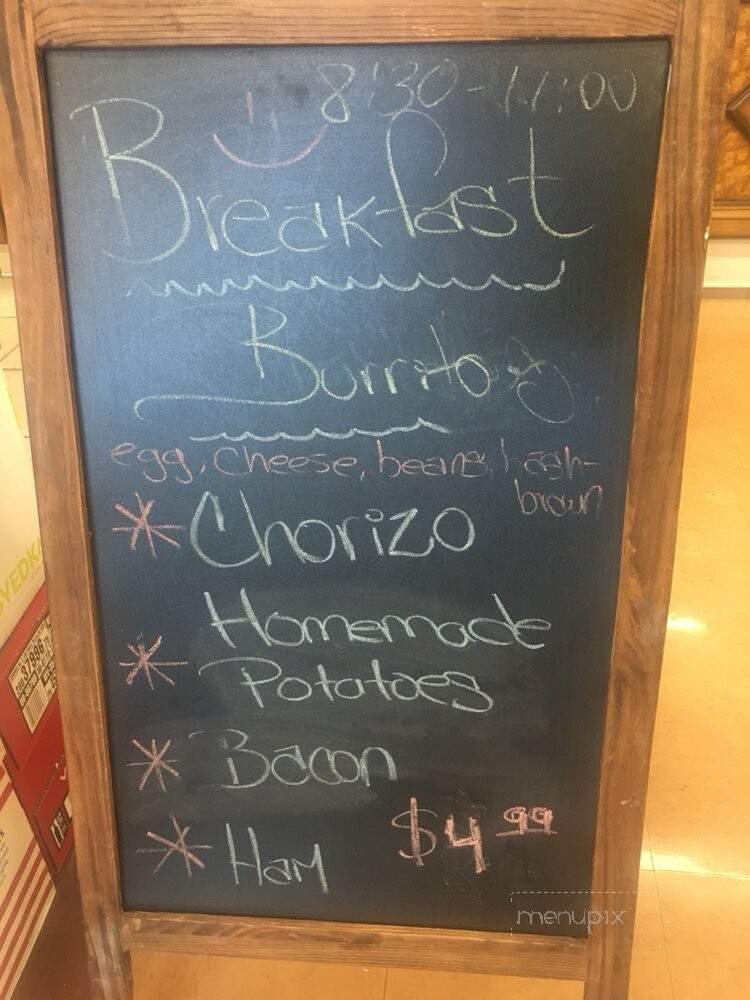 8:30-11:00
Breakfast
Burritos
egg, cheese, beans, hash-
brown
* Chorizo
Homemade
* Potatoes
* Bacon
* Ham $4.99
menupix